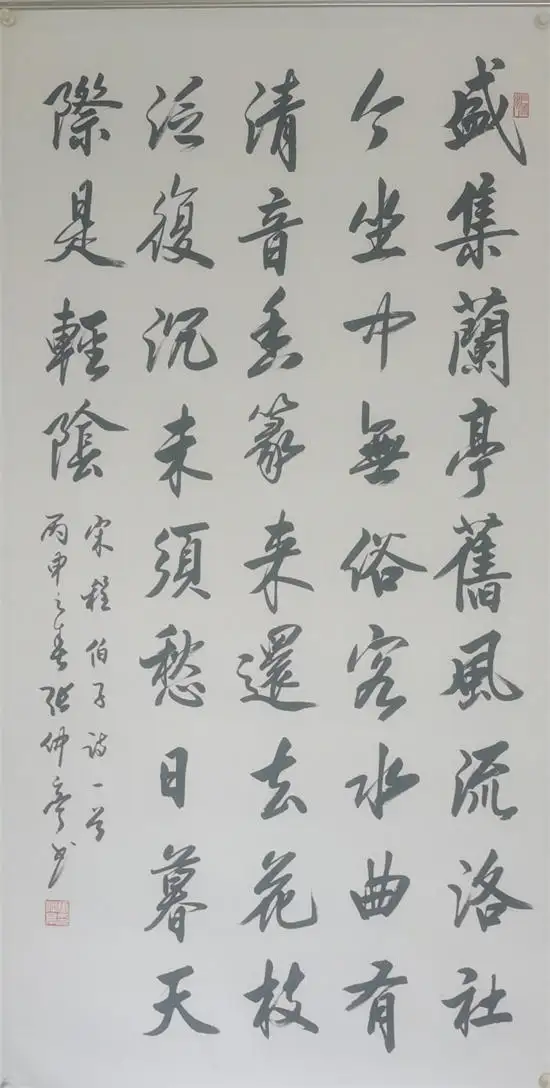 盛集蘭亭舊風流洛社
今坐中無俗客水曲有
清音香篆来還去花枝
泛復沉未須愁日暮天
際是輕陰
宋程伯子詩一首
丙申之春张仲亭书